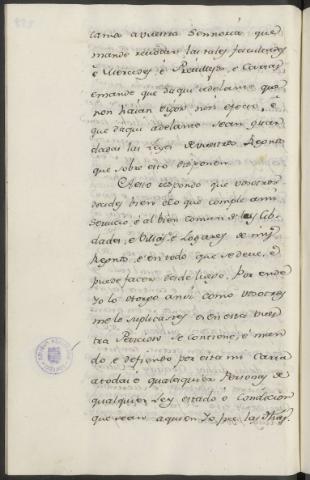 lama a vuestra Sennoria que
mande revocar las tales facultades
e Mercedes, e Previllejos, e Cartas
e mande que daqui adelante que
non haian vigor nen efecto, e
que daqui adelante sean guar
dadas las Leyes de vuestros Regnos
que sobre esto disponen.
A esto respondo que vosotros
decides bien e lo que cumple a mi
servicio, e al bien comun de las Cib
dades, e Villas, e Logares de mis
Regnos, e en todo que se deve, e
puede facer desde luego, Por ende
Yo lo otorgo ansi como vosotros
me lo suplicades e en esta vues
tra Peticion se contiene, e man
do, e defiendo por esta mi Carta
a todas e qualesquier Personas de
qualquier Ley estado o Condicion
que sean a quien Yo fice las